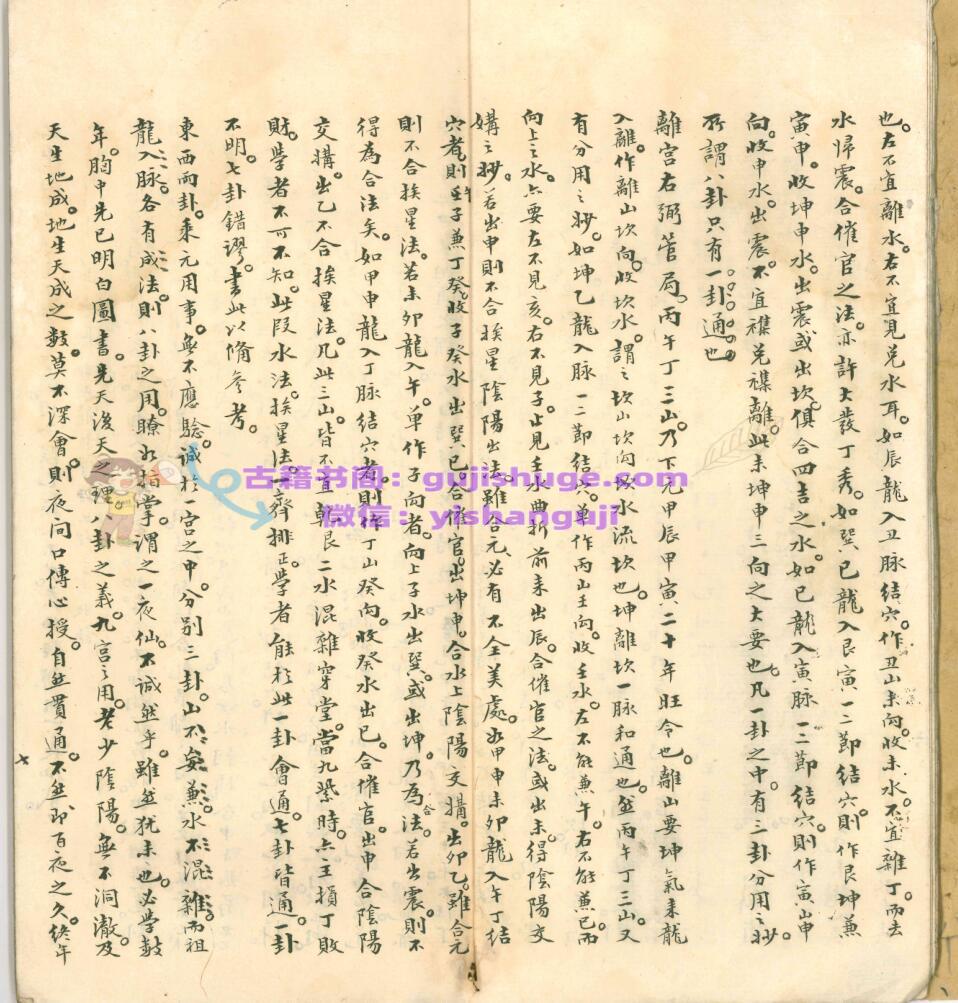 也。左不宜離水。右不宜見兌水耳。如辰龍入丑脉結穴。作丑山未向。收未水。不宜雜丁。而去
水歸震。合催官之法。亦許大發丁秀。如巽巳龍入艮寅一二節結穴。則作艮坤兼
寅申。收坤申水。出震或出坎。俱合四吉之水。如巳龍入寅脉一二節結穴。則作寅山申
向。收申水。出震。不宜襍兌襍離。此未坤申三向之大要也。凡一卦之中。有三卦分用之妙。
所謂八卦只有一卦通也
離宮右弼管局。丙午丁三山。乃下元甲辰甲寅二十年旺令也。離山要坤氣來龍
入離。作離山坎向。收坎水。謂之坎山坎向坎水流坎也。坤離坎一脉和通也。然丙午丁三山。又
有分用之妙。如坤乙龍入脉一二節結穴。單作丙山壬向。收壬水。左不能兼午。右不能兼巳。而
向上之水。六要左不見亥。右不見子。止見壬水曲折前來出辰。合催官之法。或出未。得陰陽交
媾之妙。若出申則不合挨星陰陽出法。雖合元。必有不全美處。如甲申未卯龍入午丁結
穴者。則午子兼丁癸。收子癸水出巽巳合催官。出坤申。合水上陰陽交媾。出卯乙。雖合元
則不合挨星法。若未卯龍入午。單作子向者。向上子水出巽。或出坤。乃為合法。若出震則不
得為合法矣。如甲申龍入丁脉結穴者。則作丁山癸向。收癸水出巳。合催官。出申合陰陽
交媾。出乙不合挨星法。凡此三山。皆不宜乾艮二水混雜穿堂。當九紫時。六主損丁敗
財。學者不可不知。此段水法。挨星法。一齊排正。學者能於此一卦會通。七卦皆通。一卦
不明。七卦錯謬。書此以備參考。
東西兩卦。乘元用事。無不應驗。誠於一宮之中。分別三卦。山不妄兼。水不混雜。而祖
龍入脉。各有成法。則八卦之用。瞭如指掌。謂之一夜仙。不誠然乎。雖然猶未也。必學數
年。胸中先已明白圖書。先天後天之理。八卦之義。九宮之用。老少陰陽。無不洞澈。及
天生地成。地生天成之數。莫不深會。則夜間口傳心授。自然貫通。不然即百夜之久。終年
古籍书阁：gujishuge.com
微信：yishanguji